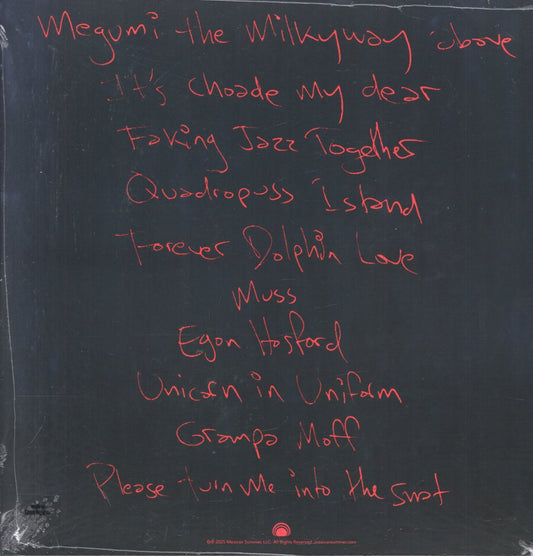 Megumi the Milkyway above
It's choade my dear
Faking Jazz Together
Quadropuss Island
Forever Dolphin Love
Muss
Egon Hosford
Unicorn in Uniform
Grampa Moff
Please turn me into the snat
℗© 2021 Mexican Summer, LLC. All Rights Reserved. mexicansummer.com